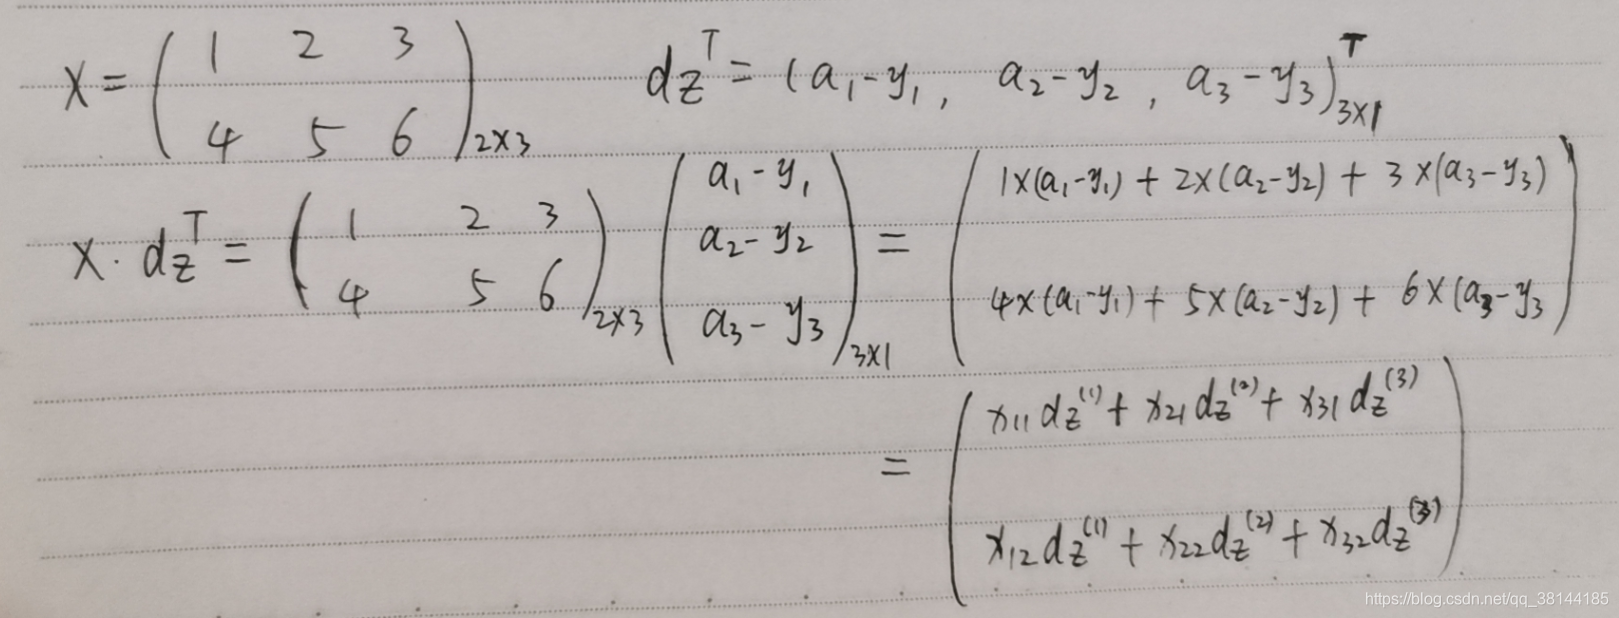 X = ( 1 2 3 dz^T = (a₁-y₁, a₂-y₂, a₃-y₃)^T 3×1
4 5 6 )2×3
X · dz^T = ( 1 2 3 4 5 6 )2×3 ( a₁-y₁ a₂-y₂ a₃-y₃ )3×1 = ( 1×(a₁-y₁) + 2×(a₂-y₂) + 3×(a₃-y₃)
4×(a₁-y₁) + 5×(a₂-y₂) + 6×(a₃-y₃ )
= ( x₁₁dz^(1) + x₂₁dz^(2) + x₃₁dz^(3)
x₁₂dz^(1) + x₂₂dz^(2) + x₃₂dz^(3) )
https://blog.csdn.net/qq_38144185